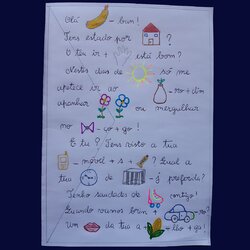 Olá - bum!
Tens estado por ?
O teu ir + está bom?
Nestes dias de só me
apetece ir ao + no + dim
apanhar ou mergulhar
no - ço + go!
E tu? Tens visto a tua
- móvel + s + ? Qual a
tua de - é preferida?
Tenho saudades de contigo!
Quando vamos brin + ?
Um da tua a + lho + ga!